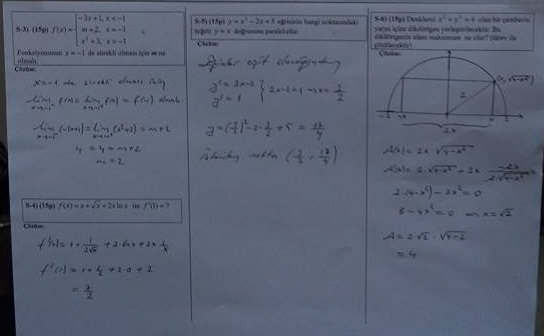 S-3) (15p) f(x) = { -3x+1, x < -1
m+2, x = -1
x²+3, x > -1
Fonksiyonunun x = -1 de sürekli olması için m ne
olmalı.
Çözüm:
x=-1 de sürekli olması için
lim f(x) = lim f(x) = f(-1) olmalı.
lim (-3x+1) = lim (x²+3) = m+2
4 = 4 = m+2
m = 2
S-4) (15p) f(x) = x + √x + 2x ln x ise f'(1) = ?
Çözüm:
f'(x) = 1 + 1/(2√x) + 2·lnx + 2x·1/x
f'(1) = 1 + 1/2 + 2·0 + 2
= 7/2
S-5) (15p) y = x² - 2x + 5 eğrisinin hangi noktasındaki
teğeti y = x doğrusuna paralel olur.
Çözüm:
y' = 2x-2
y' = 1 } 2x-2=1 => x = 3/2
y = (3/2)² - 2·3/2 + 5 = 17/4
nokta (3/2, 17/4)
S-6) (15p) Denklemi x² + y² = 4 olan bir çemberin
yarısı içine dikdörtgen yerleştirilecektir. Bu
dikdörtgenin alanı maksimum ne olur? (türev ile
çözülecektir)
Çözüm:
(x, √4-x²)
2
-2 -x x 2
2x
A(x) = 2x √4-x²
A'(x) = 2·√4-x² + 2x · -2x/(2·√4-x²)
2·(4-x²) - 2x² = 0
8 - 4x² = 0 => x = √2
A = 2·√2 · √4-2
= 4